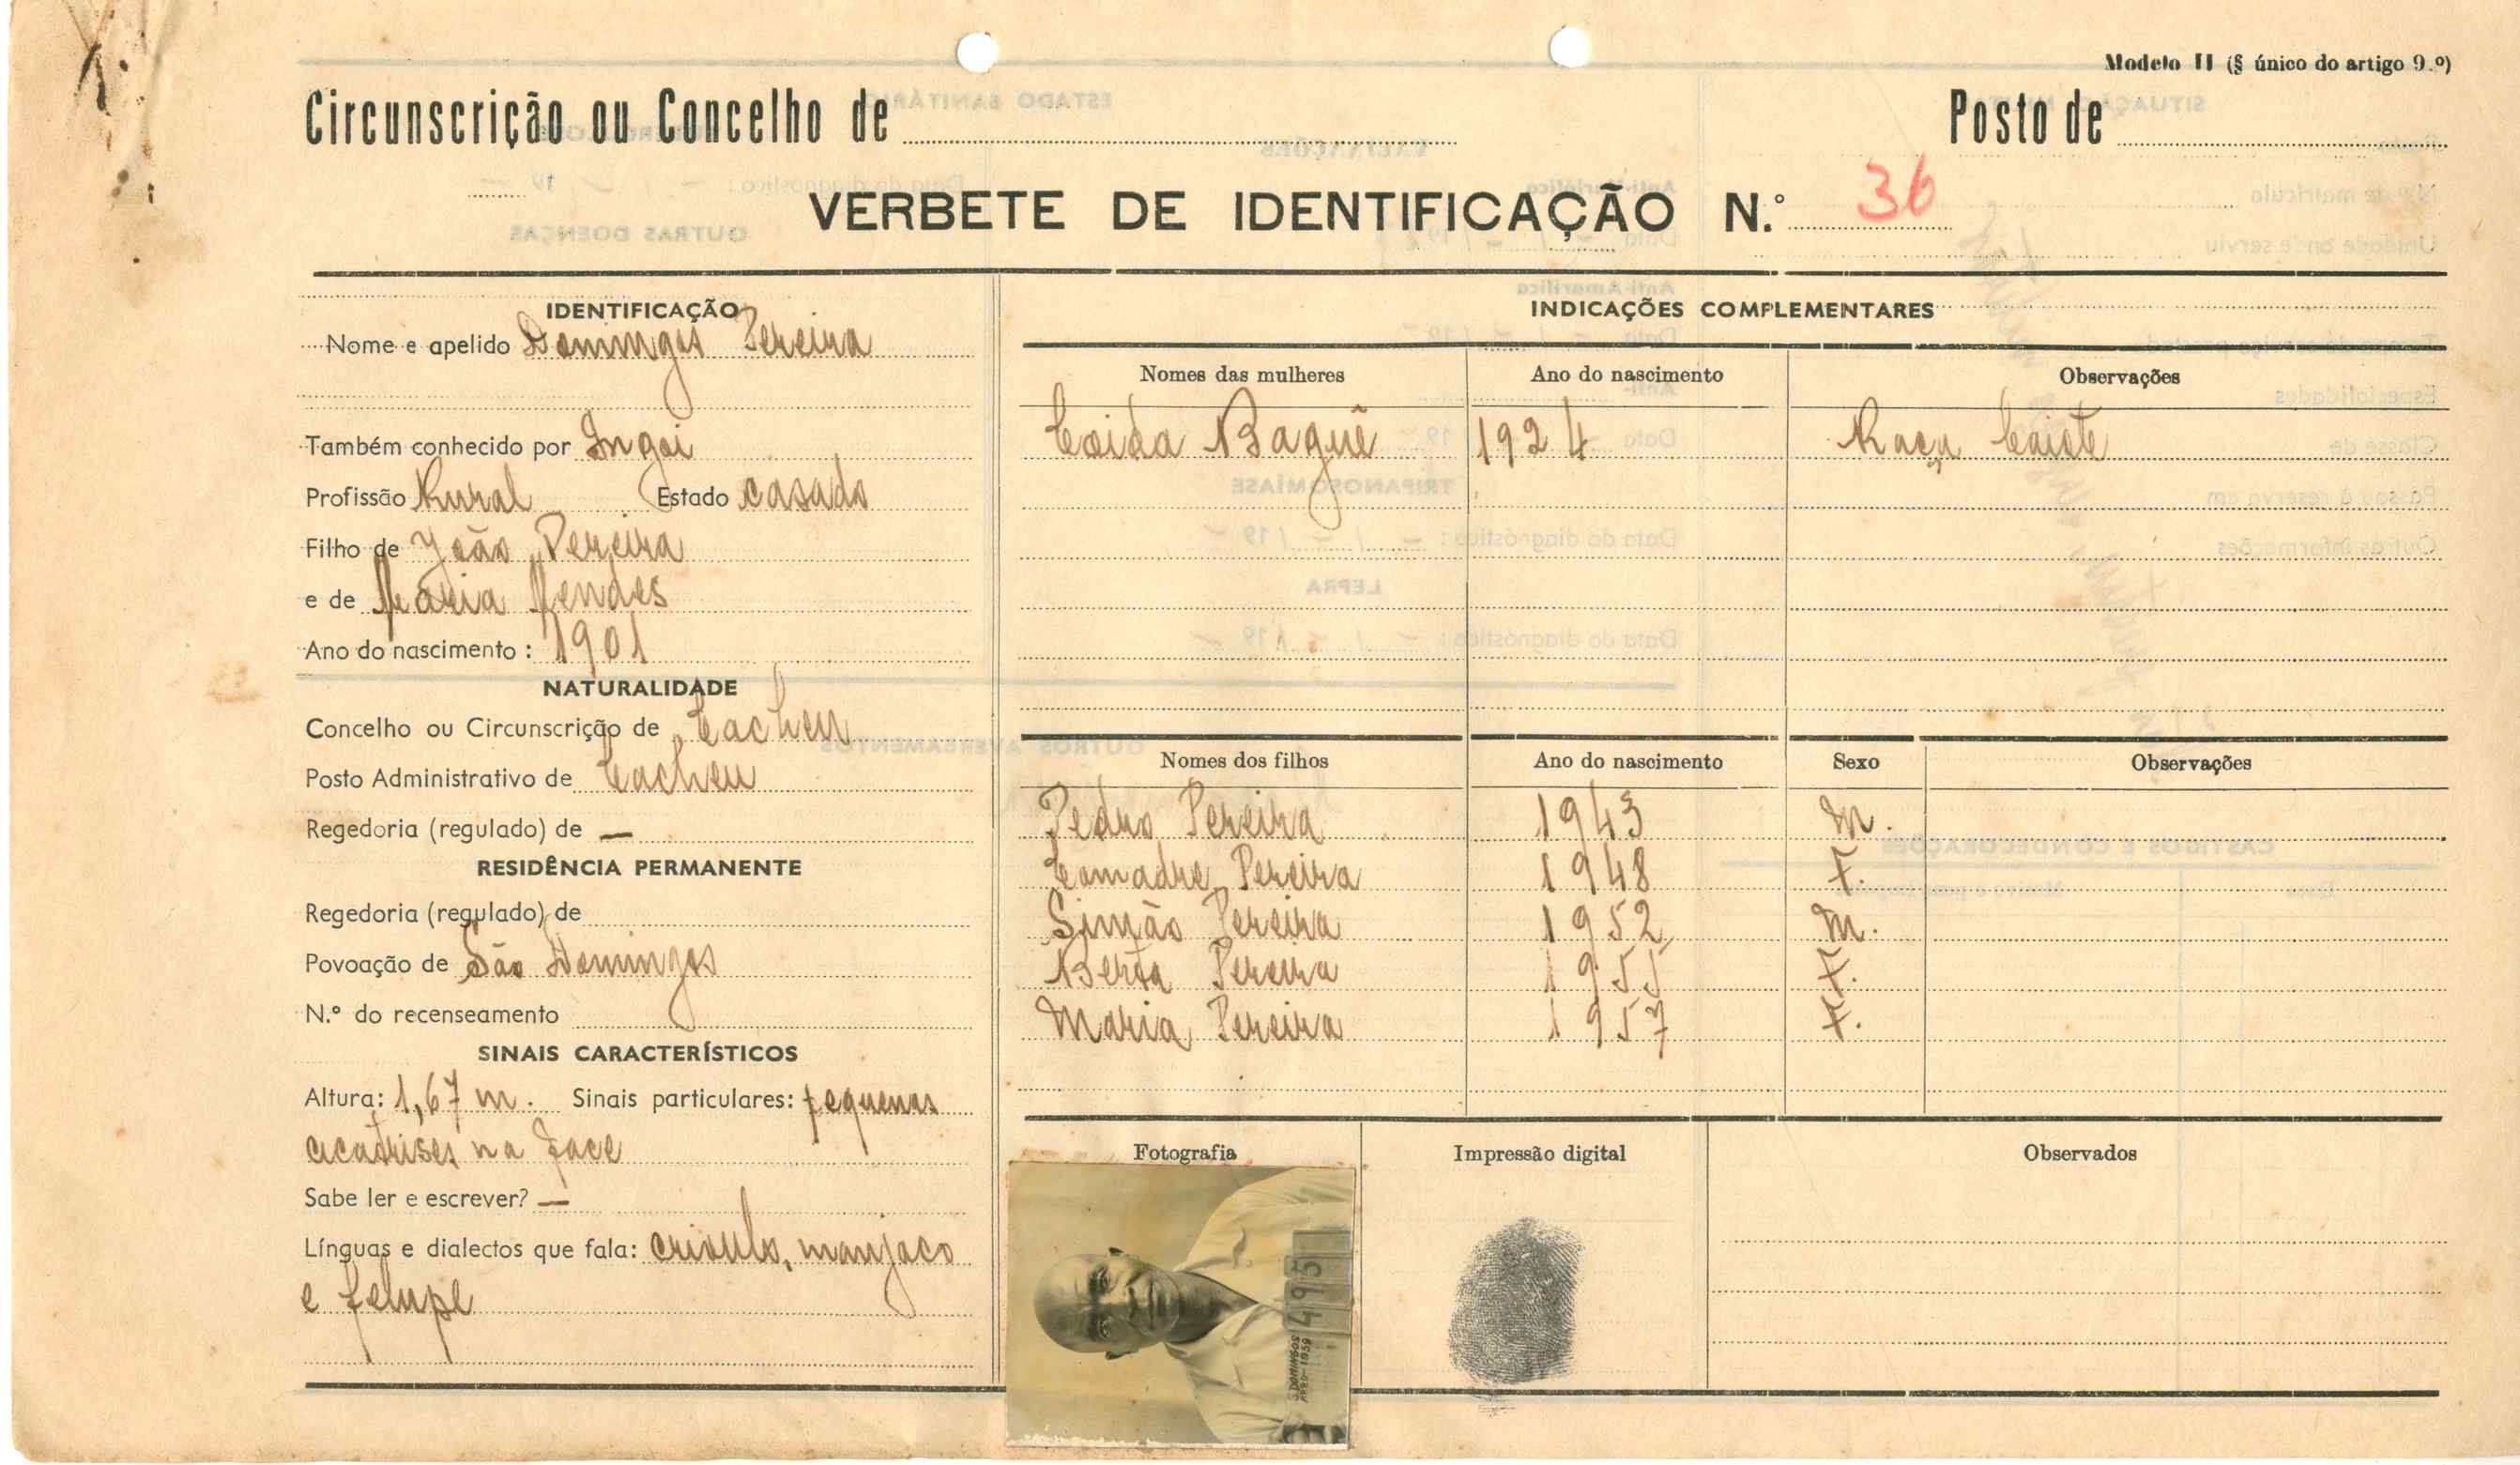 Modelo II (§ único do artigo 9.º)
Circunscrição ou Concelho de
Posto de
VERBETE DE IDENTIFICAÇÃO N.º 36
IDENTIFICAÇÃO
Nome e apelido Domingos Pereira
Também conhecido por Ingoi
Profissão Rural Estado casado
Filho de João Pereira
e de Maria Mendes
Ano do nascimento: 1901
NATURALIDADE
Concelho ou Circunscrição de Cacheu
Posto Administrativo de Cacheu
Regedoria (regulado) de —
RESIDÊNCIA PERMANENTE
Regedoria (regulado) de
Povoação de São Domingos
N.º do recenseamento
SINAIS CARACTERÍSTICOS
Altura: 1,67 m. Sinais particulares: pequenas
cicatrises na face
Sabe ler e escrever? —
Línguas e dialectos que fala: crioulo, manjaco
e felupe
INDICAÇÕES COMPLEMENTARES
Nomes das mulheres Ano do nascimento Observações
Coida Baguê 1924 Raça Caiote
Nomes dos filhos Ano do nascimento Sexo Observações
Pedro Pereira 1943 M.
Comadre Pereira 1948 F.
Simão Pereira 1952 M.
Berta Pereira 1955 F.
Maria Pereira 1957 F.
Fotografia Impressão digital Observados
4951
S.DOMINGOS
1959